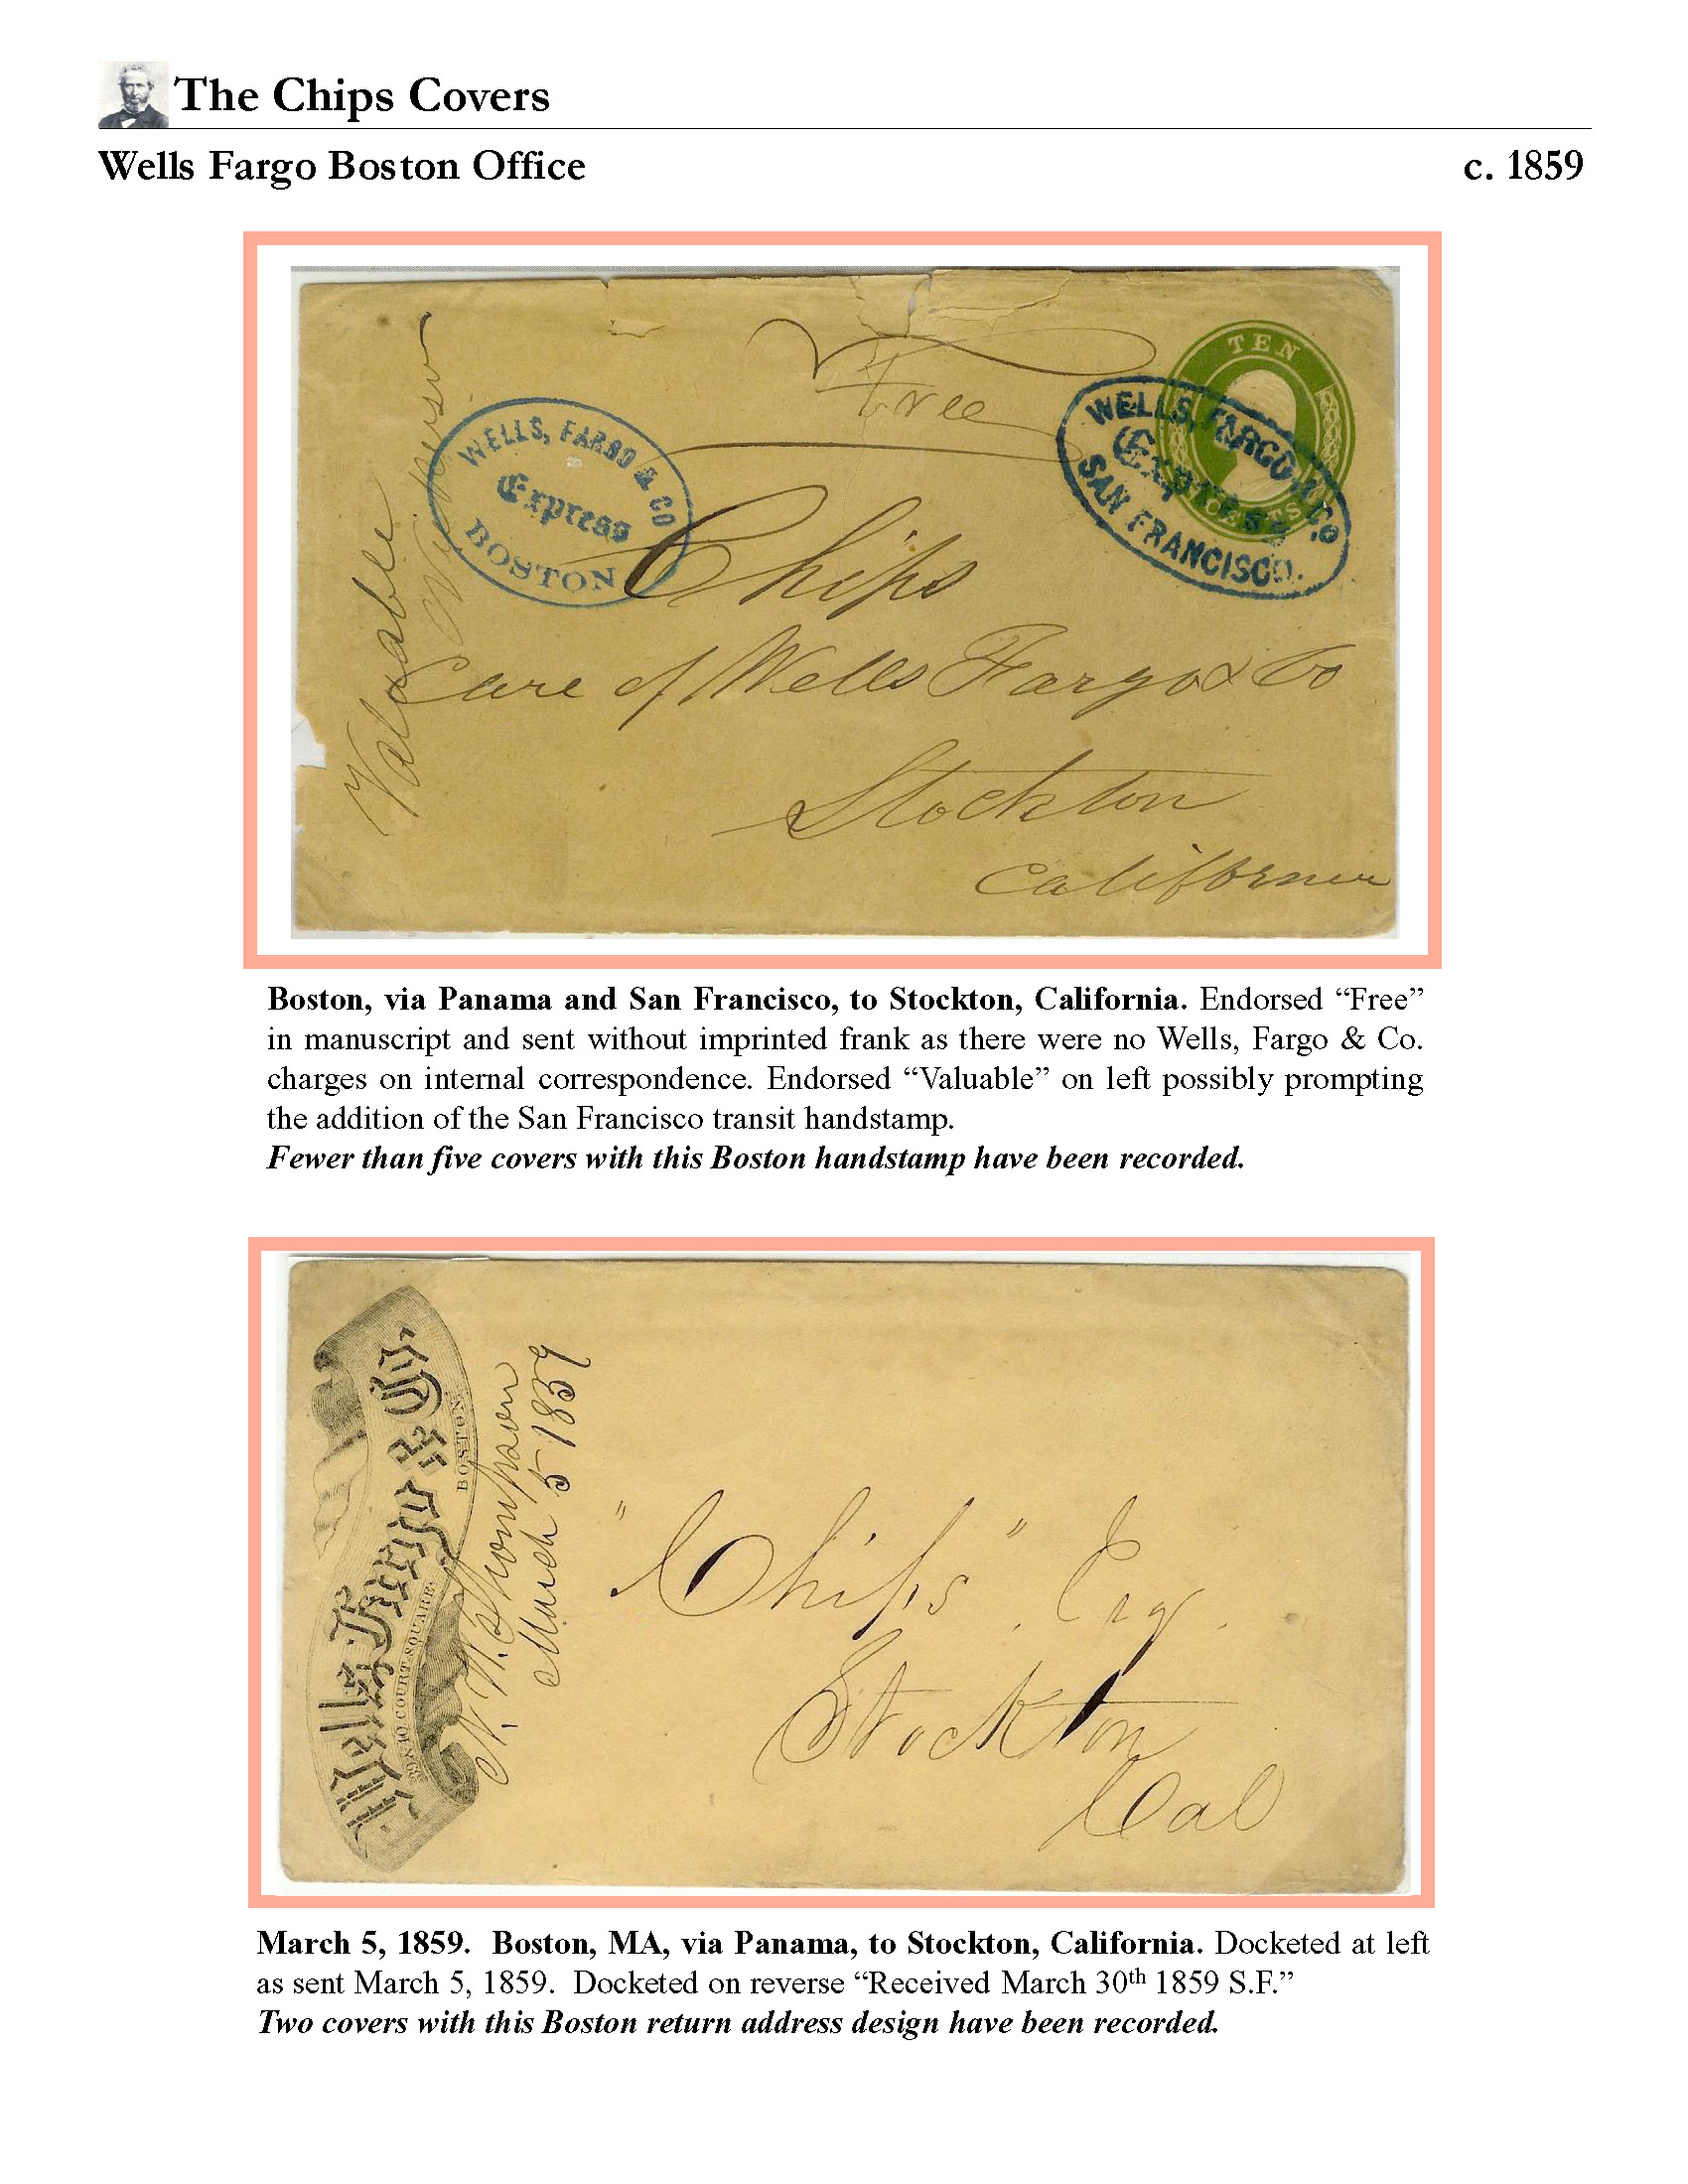 The Chips Covers
Wells Fargo Boston Office
c. 1859
Free
TEN
CENTS
WELLS, FARGO & CO
Express
BOSTON
WELLS, FARGO & Co
Express
SAN FRANCISCO.
Valuable
Chips
Care of Wells Fargo & Co
Stockton
California
Boston, via Panama and San Francisco, to Stockton, California. Endorsed “Free”
in manuscript and sent without imprinted frank as there were no Wells, Fargo & Co.
charges on internal correspondence. Endorsed “Valuable” on left possibly prompting
the addition of the San Francisco transit handstamp.
Fewer than five covers with this Boston handstamp have been recorded.
Wells Fargo & Co.
BOSTON
COURT SQUARE.
March 5 1859
"Chips" Esq.
Stockton
Cal
March 5, 1859. Boston, MA, via Panama, to Stockton, California. Docketed at left
as sent March 5, 1859. Docketed on reverse “Received March 30th 1859 S.F.”
Two covers with this Boston return address design have been recorded.